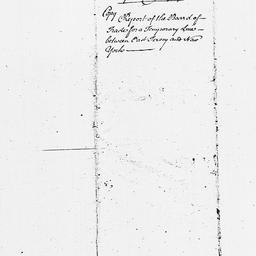 Copy Report of the Board of
Trade for a Temporary Line
between East Jersey and New
York